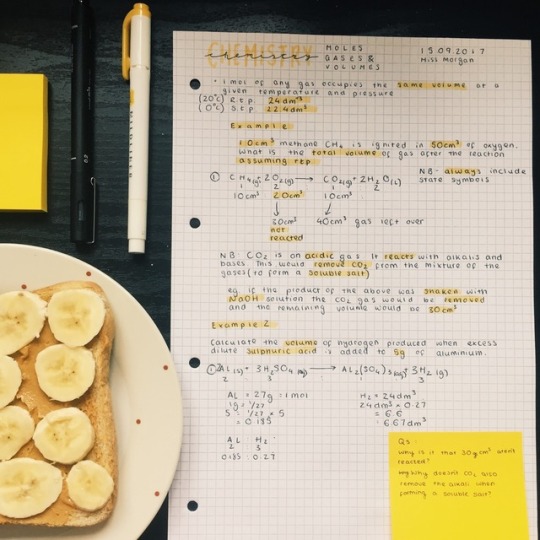 CHEMISTRY
chemistry
MOLES
GASES &
VOLUMES
15.09.2017
Miss Morgan
• 1 mol of any gas occupies the same volume at a
given temperature and pressure
(20°c) r.t.p 24dm³
(0°c) s.t.p 22.4dm³
Example
10cm³ methane CH₄ is ignited in 50cm³ of oxygen.
What is the total volume of gas after the reaction
assuming rtp
① CH₄(g) + 2O₂(g) → CO₂(g) + 2H₂O(l)
NB- always include
state symbols
1 2 1 2
10cm³ 20cm³ 10cm³
30cm³
not
reacted
40cm³ gas left over
NB: CO₂ is an acidic gas. It reacts with alkalis and
bases. This would remove CO₂ from the mixture of the
gases (to form a soluble salt)
eg. if the product of the above was shaken with
NaOH solution the CO₂ gas would be removed
and the remaining volume would be 30cm³
Example 2
Calculate the volume of hydrogen produced when excess
dilute sulphuric acid is added to 5g of aluminium.
① 2Al(s) + 3H₂SO₄(aq) → AL₂(SO₄)₃(aq) + 3H₂(g)
2 3 3
AL = 27g = 1mol
1g = 1/27
5 = 1/27 × 5
= 0.185
H₂ = 24dm³
24dm³ × 0.27
= 6.6
= 6.67dm³
AL H₂
2 : 3
0.185 : 0.27
Qs:
Why is it that 30cm³ aren't
reacted?
Why doesn't CO₂ also
remove the alkali when
forming a soluble salt?